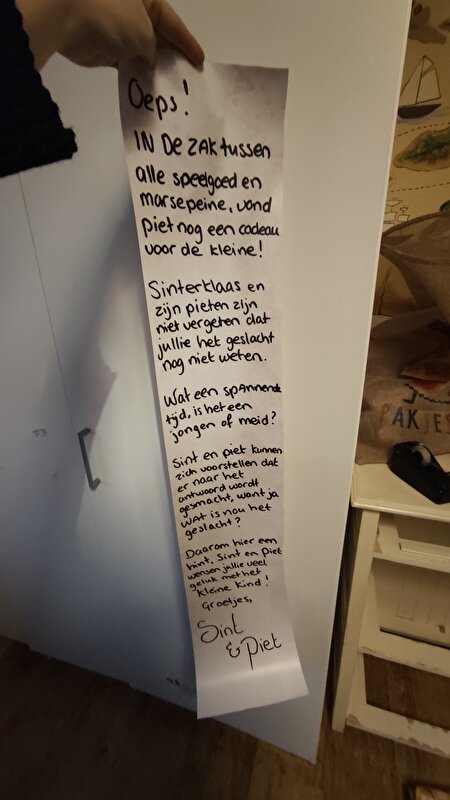 Oeps!
IN De ZAK tussen
alle speelgoed en
marsepeine, vond
piet nog een cadeau
voor de kleine!
Sinterklaas en
zijn pieten zijn
niet vergeten dat
jullie het geslacht
nog niet weten.
Wat een spannende
tijd, is het een
jongen of meid?
Sint en piet kunnen
zich voorstellen dat
er naar het
antwoord wordt
gesmacht, want ja
wat is nou het
geslacht?
Daarom hier een
hint, Sint en Piet
wensen jullie veel
geluk met het
kleine kind!
Groetjes,
Sint
& Piet
PAKJES